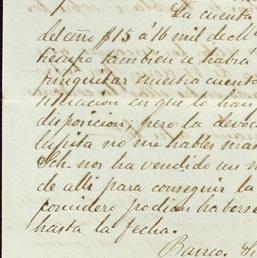 La cuenta
del año $15 á 16 mil de
tiempo tambien le habrá
finiquitar nuestra cuenta
situacion en que lo han
disposicion; pero la
lupita no me hables mas
Sch. nos ha vendido un
de alli para conseguir la
comidero podian haberse
hasta la fecha.
Banco.